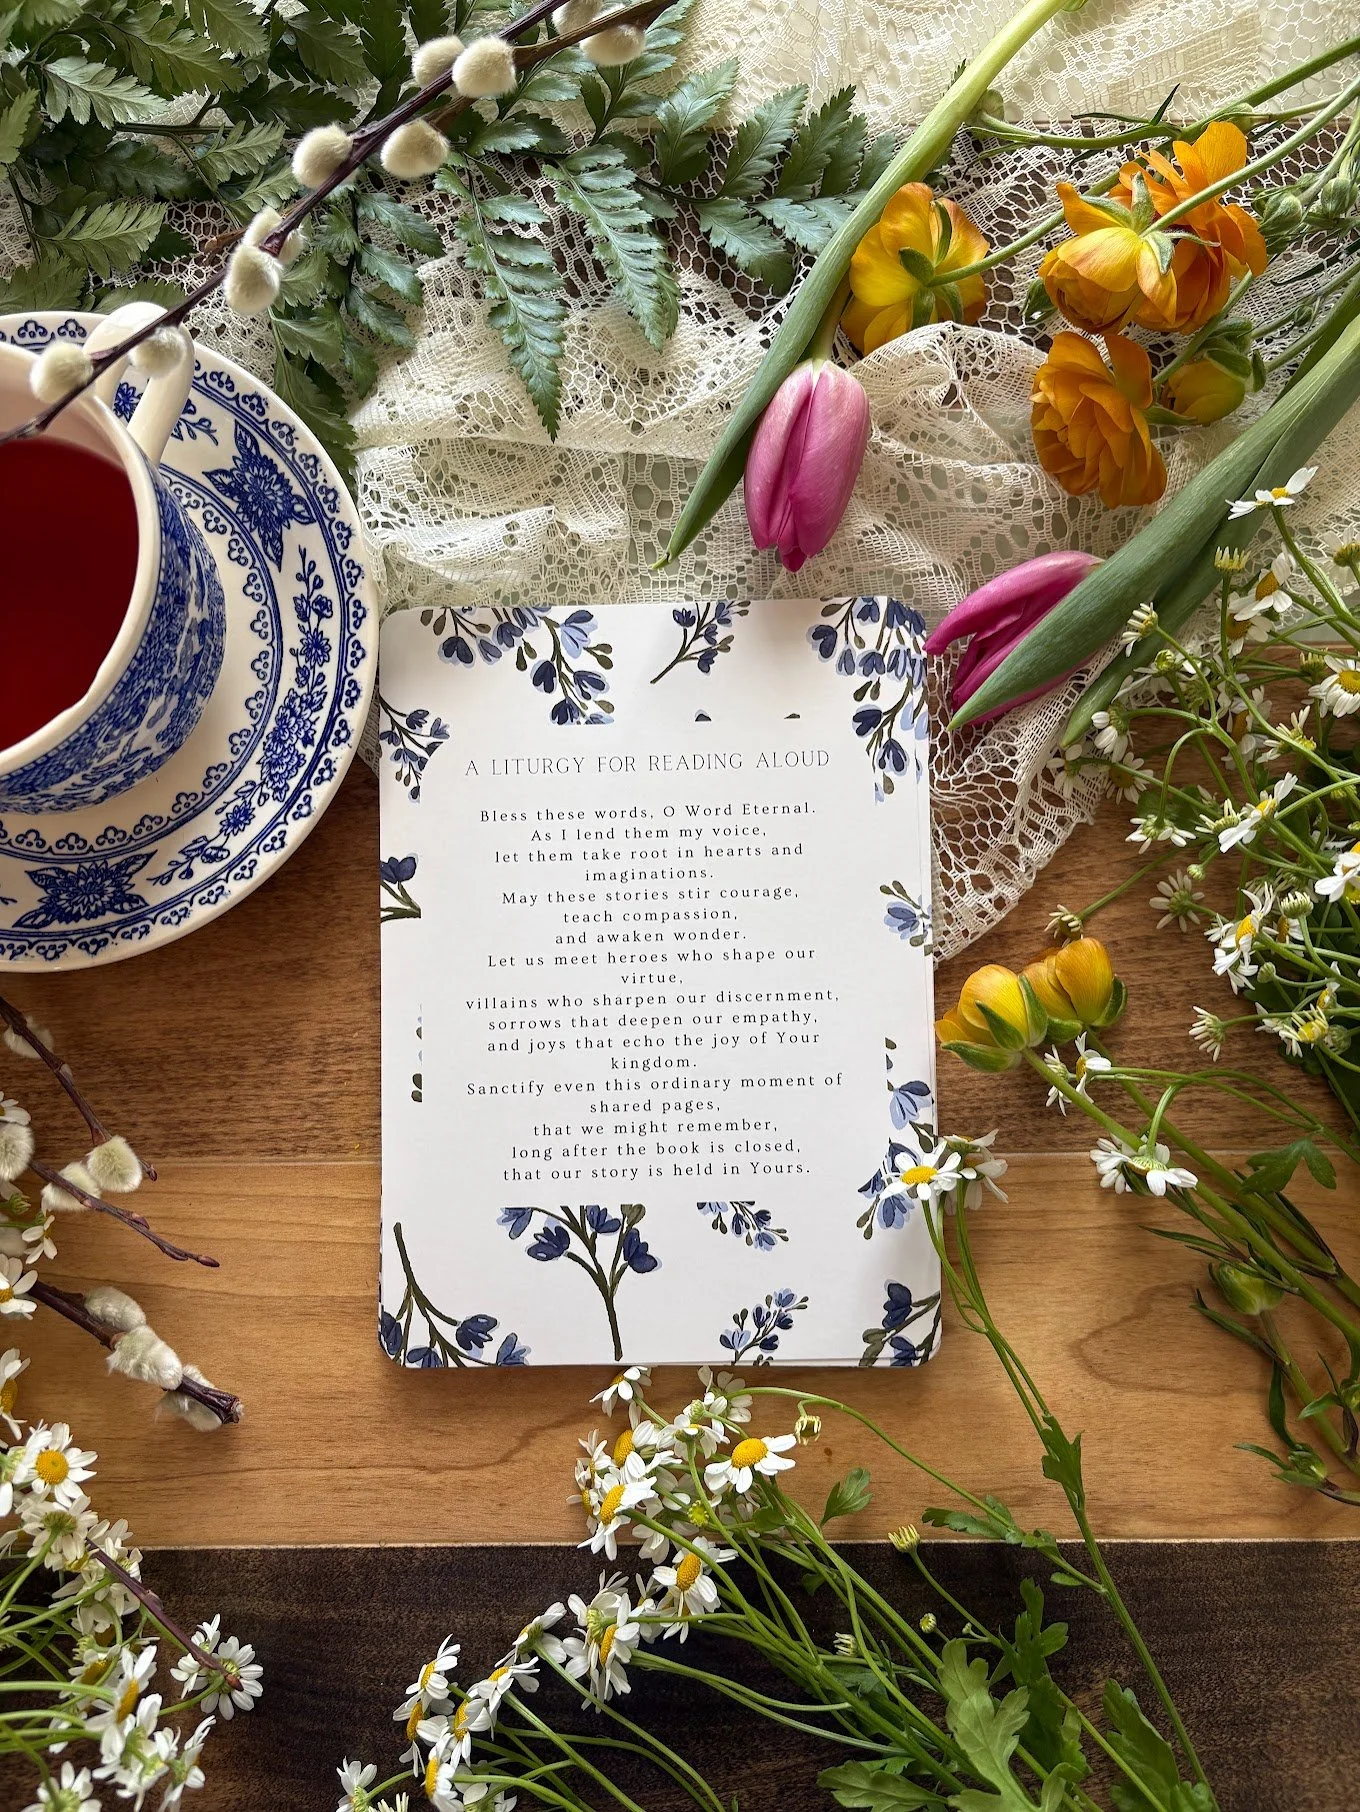 A LITURGY FOR READING ALOUD
Bless these words, O Word Eternal.
As I lend them my voice,
let them take root in hearts and
imaginations.
May these stories stir courage,
teach compassion,
and awaken wonder.
Let us meet heroes who shape our
virtue,
villains who sharpen our discernment,
sorrows that deepen our empathy,
and joys that echo the joy of Your
kingdom.
Sanctify even this ordinary moment of
shared pages,
that we might remember,
long after the book is closed,
that our story is held in Yours.